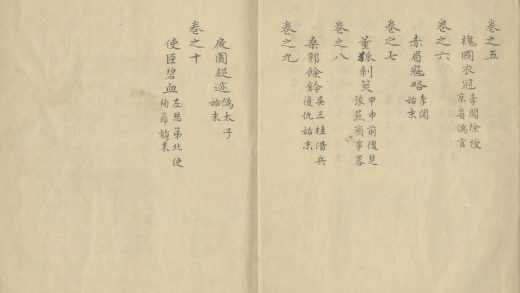 卷之五
槐國衣冠 李闖除授
京省偽官
卷之六
赤眉寇略 李闖
始末
卷之七
董狐剩筴 甲申前後楚
豫燕齊事畧
卷之八
桑郭餘鈴 吳三桂借兵
復仇始末
卷之九
戾園疑迹 偽太子
始末
卷之十
使臣碧血 左懋第北使
殉節始末